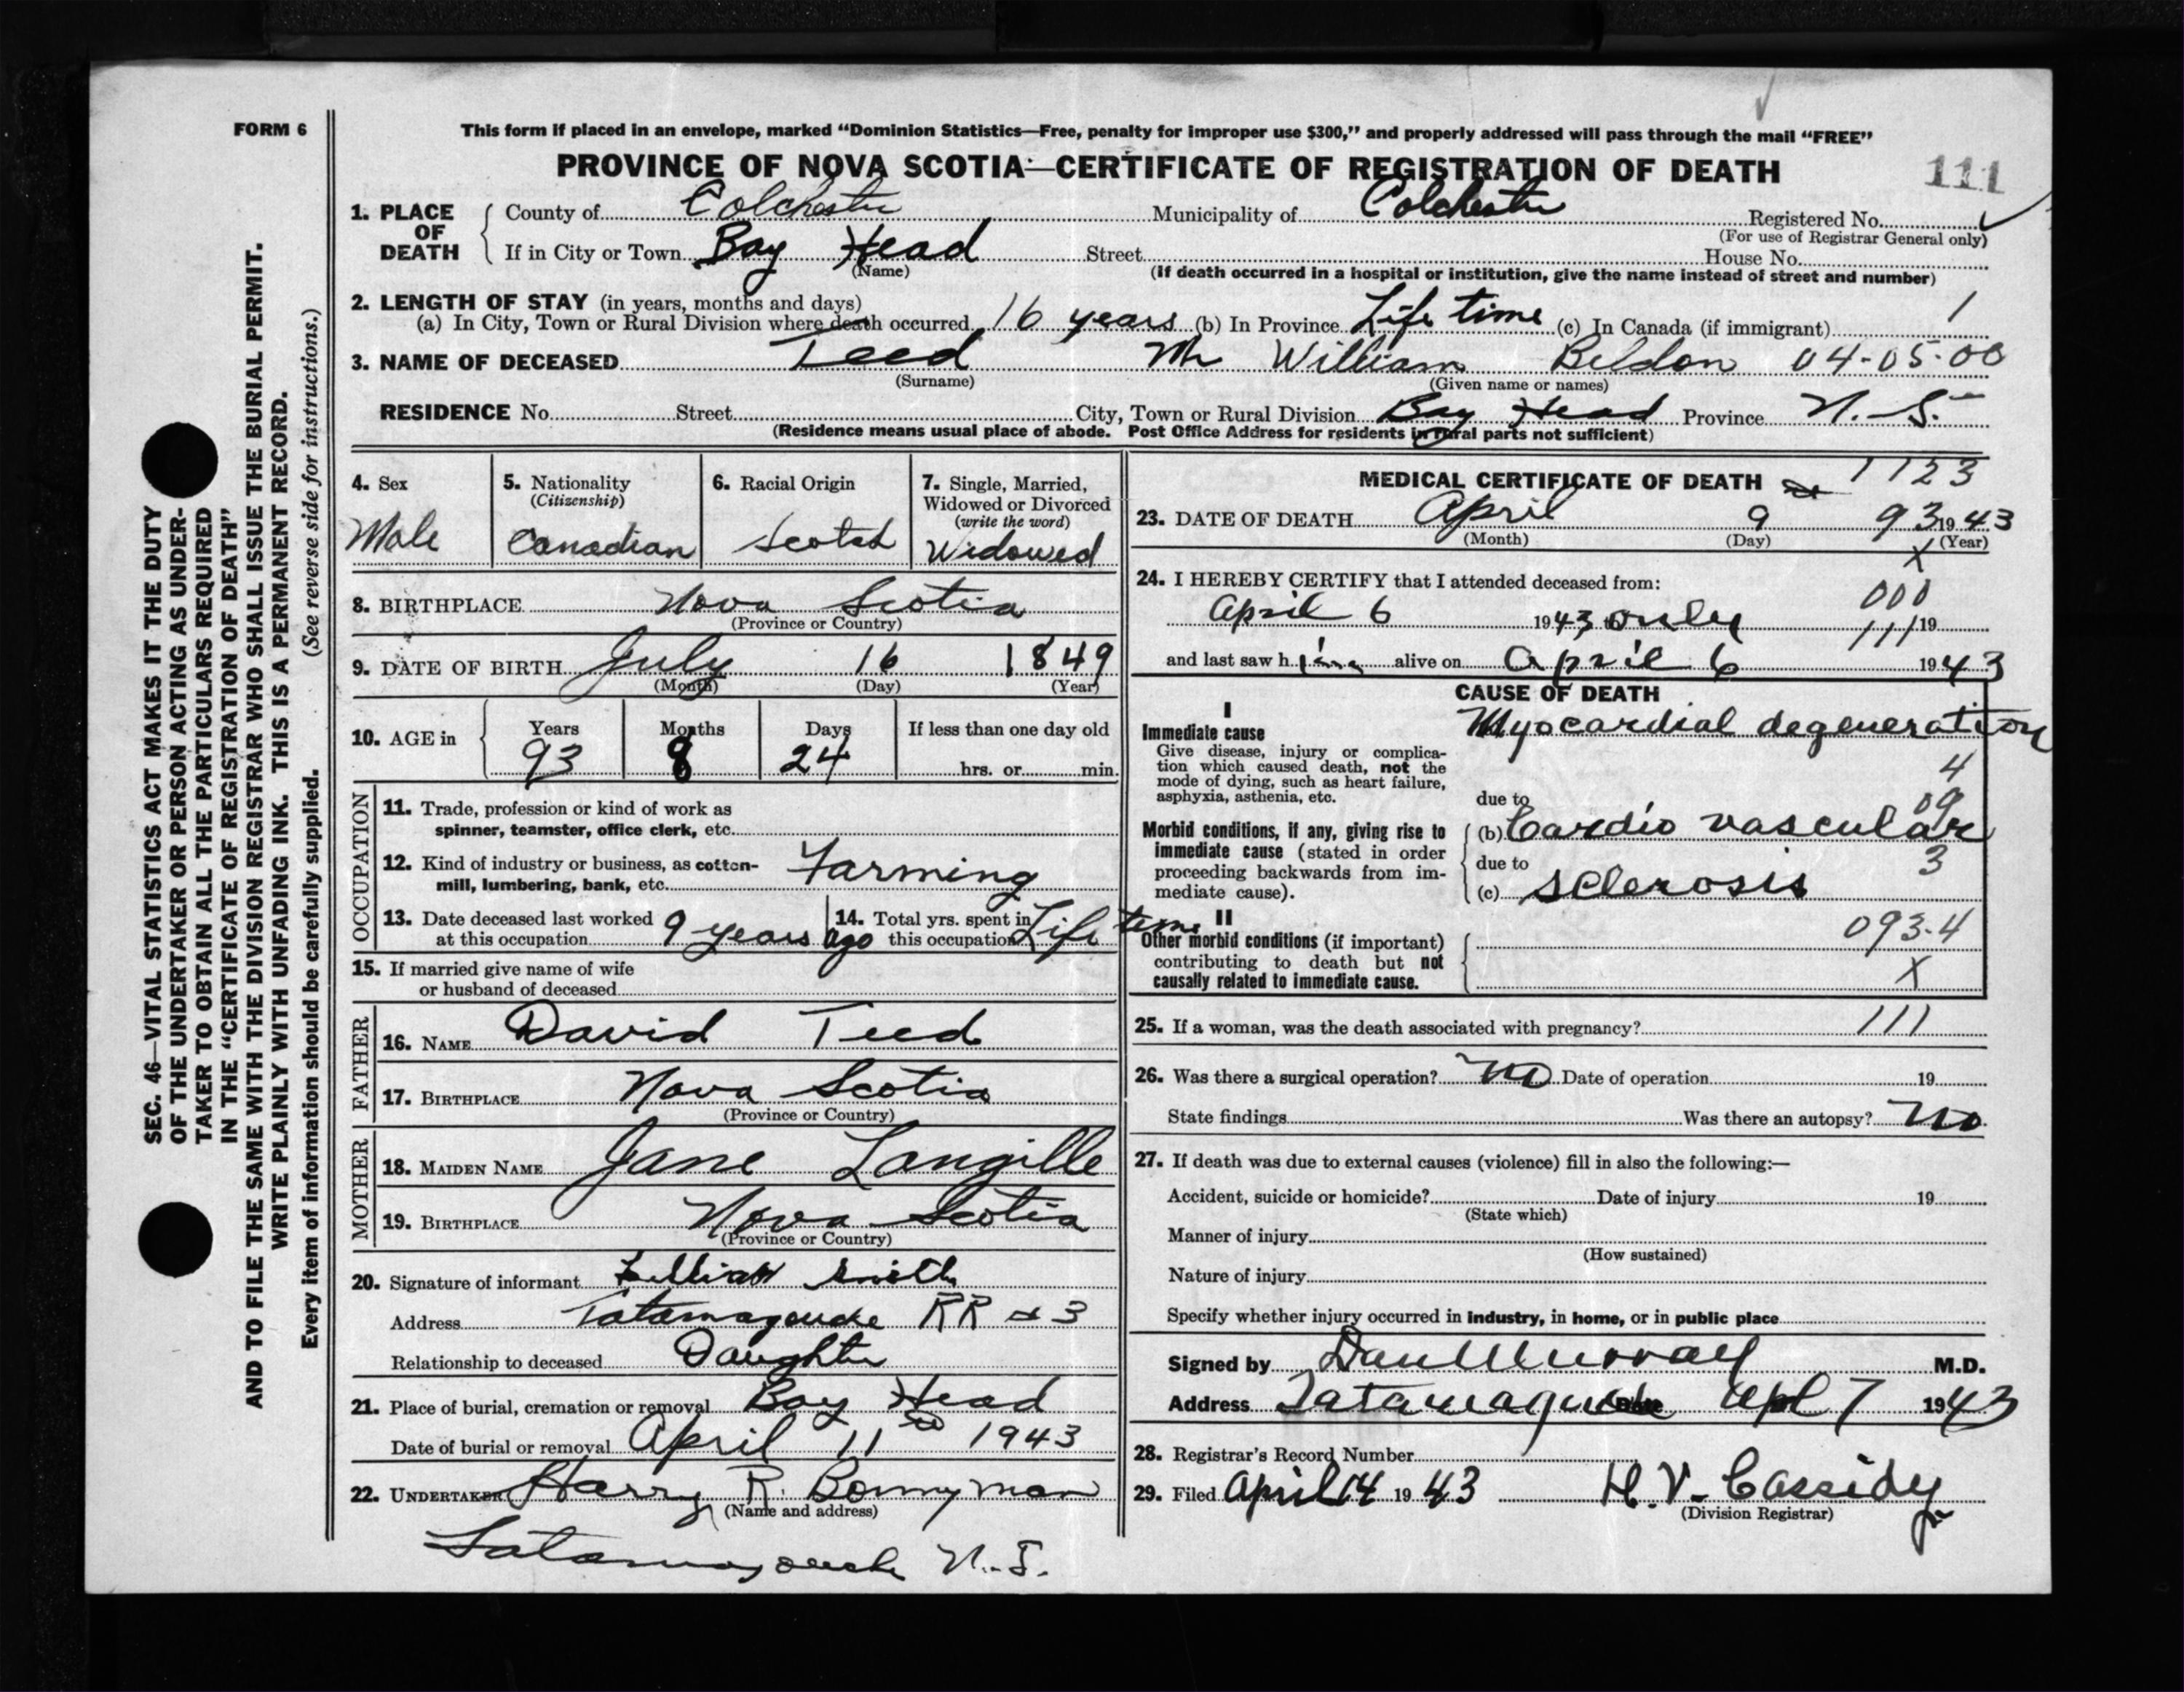 FORM 6
This form if placed in an envelope, marked “Dominion Statistics—Free, penalty for improper use $300,” and properly addressed will pass through the mail “FREE”
PROVINCE OF NOVA SCOTIA—CERTIFICATE OF REGISTRATION OF DEATH
111
1. PLACE OF DEATH
County of Colchester Municipality of Colchester Registered No.
(For use of Registrar General only)
If in City or Town Bay Head Street House No.
(Name) (If death occurred in a hospital or institution, give the name instead of street and number)
2. LENGTH OF STAY (in years, months and days)
(a) In City, Town or Rural Division where death occurred 16 years (b) In Province Life time (c) In Canada (if immigrant) 1
3. NAME OF DECEASED Teed Mr William Beldon 04-05-00
(Surname) (Given name or names)
RESIDENCE No. Street City, Town or Rural Division Bay Head Province N. S.
(Residence means usual place of abode. Post Office Address for residents in rural parts not sufficient)
4. Sex
Male
5. Nationality
(Citizenship)
Canadian
6. Racial Origin
Scotch
7. Single, Married,
Widowed or Divorced
(write the word)
Widowed
8. BIRTHPLACE Nova Scotia
(Province or Country)
9. DATE OF BIRTH July 16 1849
(Month) (Day) (Year)
10. AGE in Years Months Days If less than one day old
93 8 24 hrs. or min.
OCCUPATION
11. Trade, profession or kind of work as
spinner, teamster, office clerk, etc.
12. Kind of industry or business, as cotton-
mill, lumbering, bank, etc. Farming
13. Date deceased last worked
at this occupation 9 years ago
14. Total yrs. spent in
this occupation Life time
15. If married give name of wife
or husband of deceased
FATHER
16. NAME David Teed
17. BIRTHPLACE Nova Scotia
(Province or Country)
MOTHER
18. MAIDEN NAME Jane Langille
19. BIRTHPLACE Nova Scotia
(Province or Country)
20. Signature of informant Lillian Smith
Address Tatamagouche RR # 3
Relationship to deceased Daughter
21. Place of burial, cremation or removal Bay Head
Date of burial or removal April 11th 1943
22. UNDERTAKER Harry R. Bonnyman
(Name and address)
Tatamagouche N.S.
MEDICAL CERTIFICATE OF DEATH 1123
23. DATE OF DEATH April 9 93 1943
(Month) (Day) (Year)
X
24. I HEREBY CERTIFY that I attended deceased from:
000
April 6 1943 only 111 19
and last saw him alive on April 6 1943
CAUSE OF DEATH
I
Immediate cause
Give disease, injury or complica-
tion which caused death, not the
mode of dying, such as heart failure,
asphyxia, asthenia, etc.
Myocardial degeneration
4
09
due to
Morbid conditions, if any, giving rise to
immediate cause (stated in order
proceeding backwards from im-
mediate cause).
(b) Cardio vascular
due to 3
(c) sclerosis
II
Other morbid conditions (if important)
contributing to death but not
causally related to immediate cause.
093-4
X
25. If a woman, was the death associated with pregnancy? 111
26. Was there a surgical operation? No Date of operation 19
State findings Was there an autopsy? No
27. If death was due to external causes (violence) fill in also the following:—
Accident, suicide or homicide? Date of injury 19
(State which)
Manner of injury
(How sustained)
Nature of injury
Specify whether injury occurred in industry, in home, or in public place
Signed by Dan Murray M.D.
Address Tatamagouche Apl 7 1943
28. Registrar's Record Number
29. Filed April 14 1943 H.V. Cassidy
(Division Registrar)
SEC. 46—VITAL STATISTICS ACT MAKES IT THE DUTY
OF THE UNDERTAKER OR PERSON ACTING AS UNDER-
TAKER TO OBTAIN ALL THE PARTICULARS REQUIRED
IN THE “CERTIFICATE OF REGISTRATION OF DEATH”
AND TO FILE THE SAME WITH THE DIVISION REGISTRAR WHO SHALL ISSUE THE BURIAL PERMIT.
WRITE PLAINLY WITH UNFADING INK. THIS IS A PERMANENT RECORD.
Every item of information should be carefully supplied. (See reverse side for instructions.)